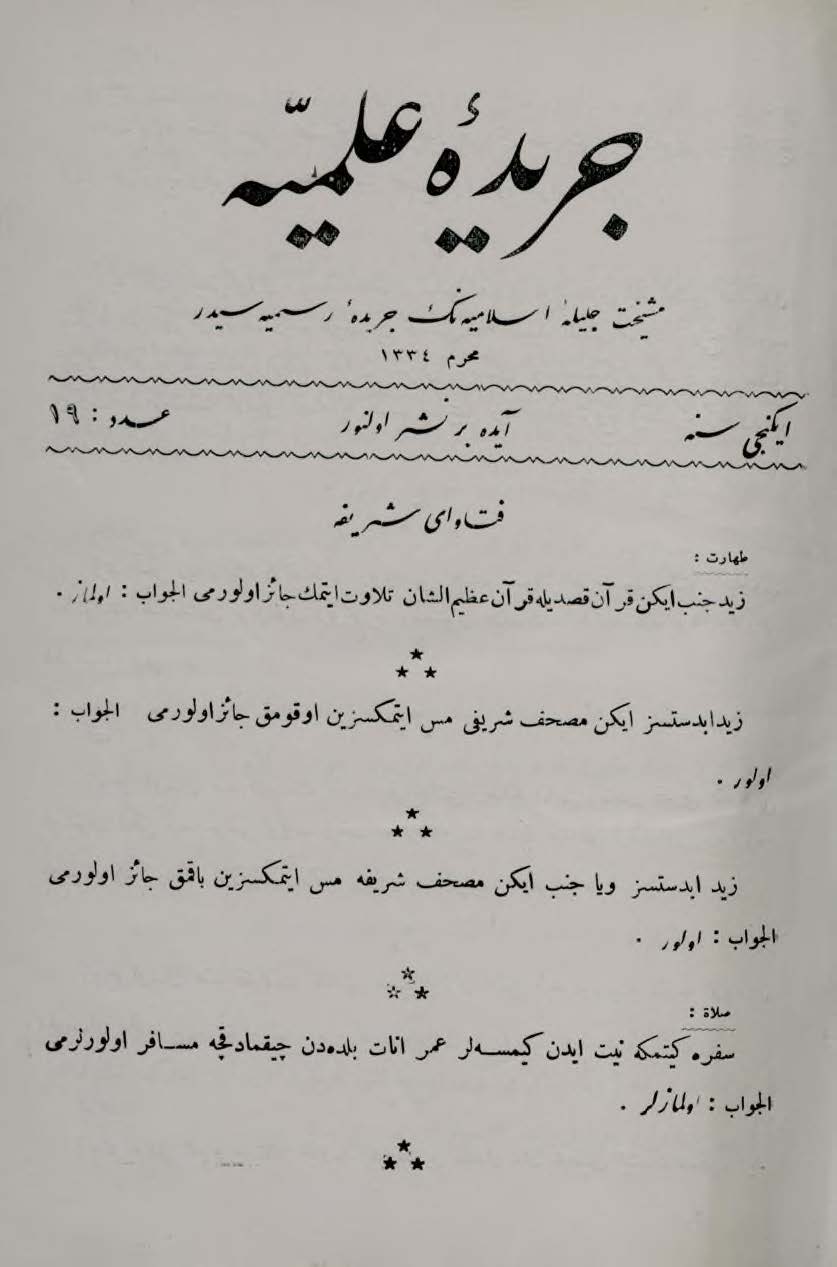 جریدۀ علمیّه
مشیخت جلیلۀ اسلامیه نك جریدۀ رسمیه سیدر
محرم ١٣٣٤
ایکنجی سنه آیده بر نشر اولنور عدد : ١٩
فتاوای شریفه
طهارت :
زید جنب ایکن قرآن قصدیله قرآن عظیم الشان تلاوت ایتمك جائز اولورمی الجواب : اولماز .
زید ابدستسز ایکن مصحف شریفی مس ایتمکسزین اوقومق جائز اولورمی الجواب :
اولور .
زید ابدستسز ویا جنب ایکن مصحف شریفه مس ایتمکسزین باقمق جائز اولورمی
الجواب : اولور .
صلاة :
سفره کیتمکه نیت ایدن کیمسه لر عمرانات بلده دن چیقمادقجه مسافر اولورلرمی
الجواب : اولمازلر .